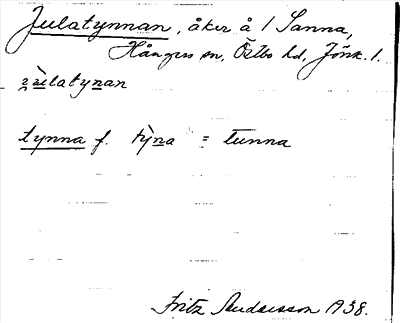 Julatynnan, åker å 1 Sanna,
Hångers sn, Östbo hd, Jönk. l.
jùlatynan
tynna f. tỳna = tunna
Fritz Andersson 1938.